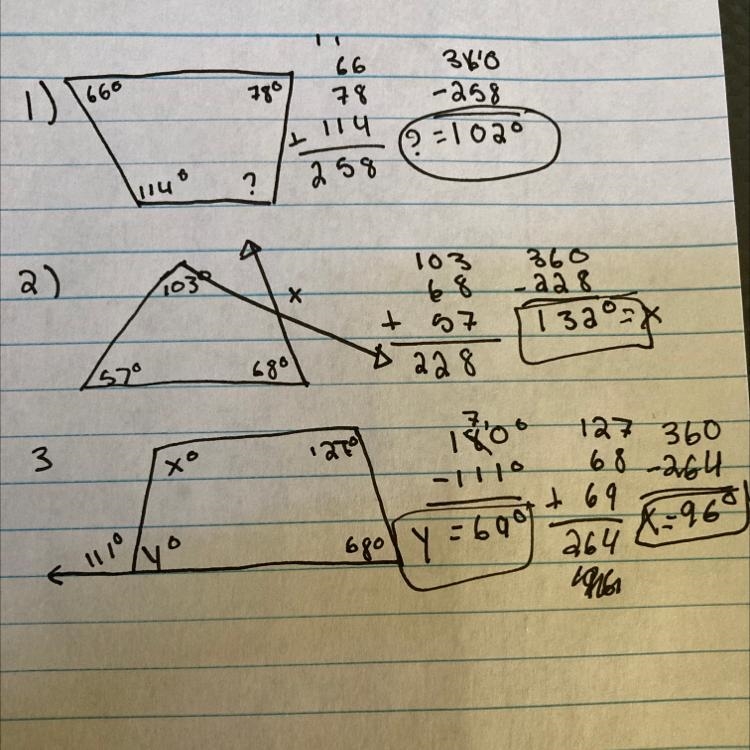 1)
66° 78°
114° ?
66
78
+ 114
258
360
-258
? = 102°
2)
103°
x
57° 68°
103
68
+ 57
228
360
-228
132° = x
3
x° 127°
111° y° 68°
180°
-111°
y = 69°
127
68
+ 69
264
360
-264
x = 96°